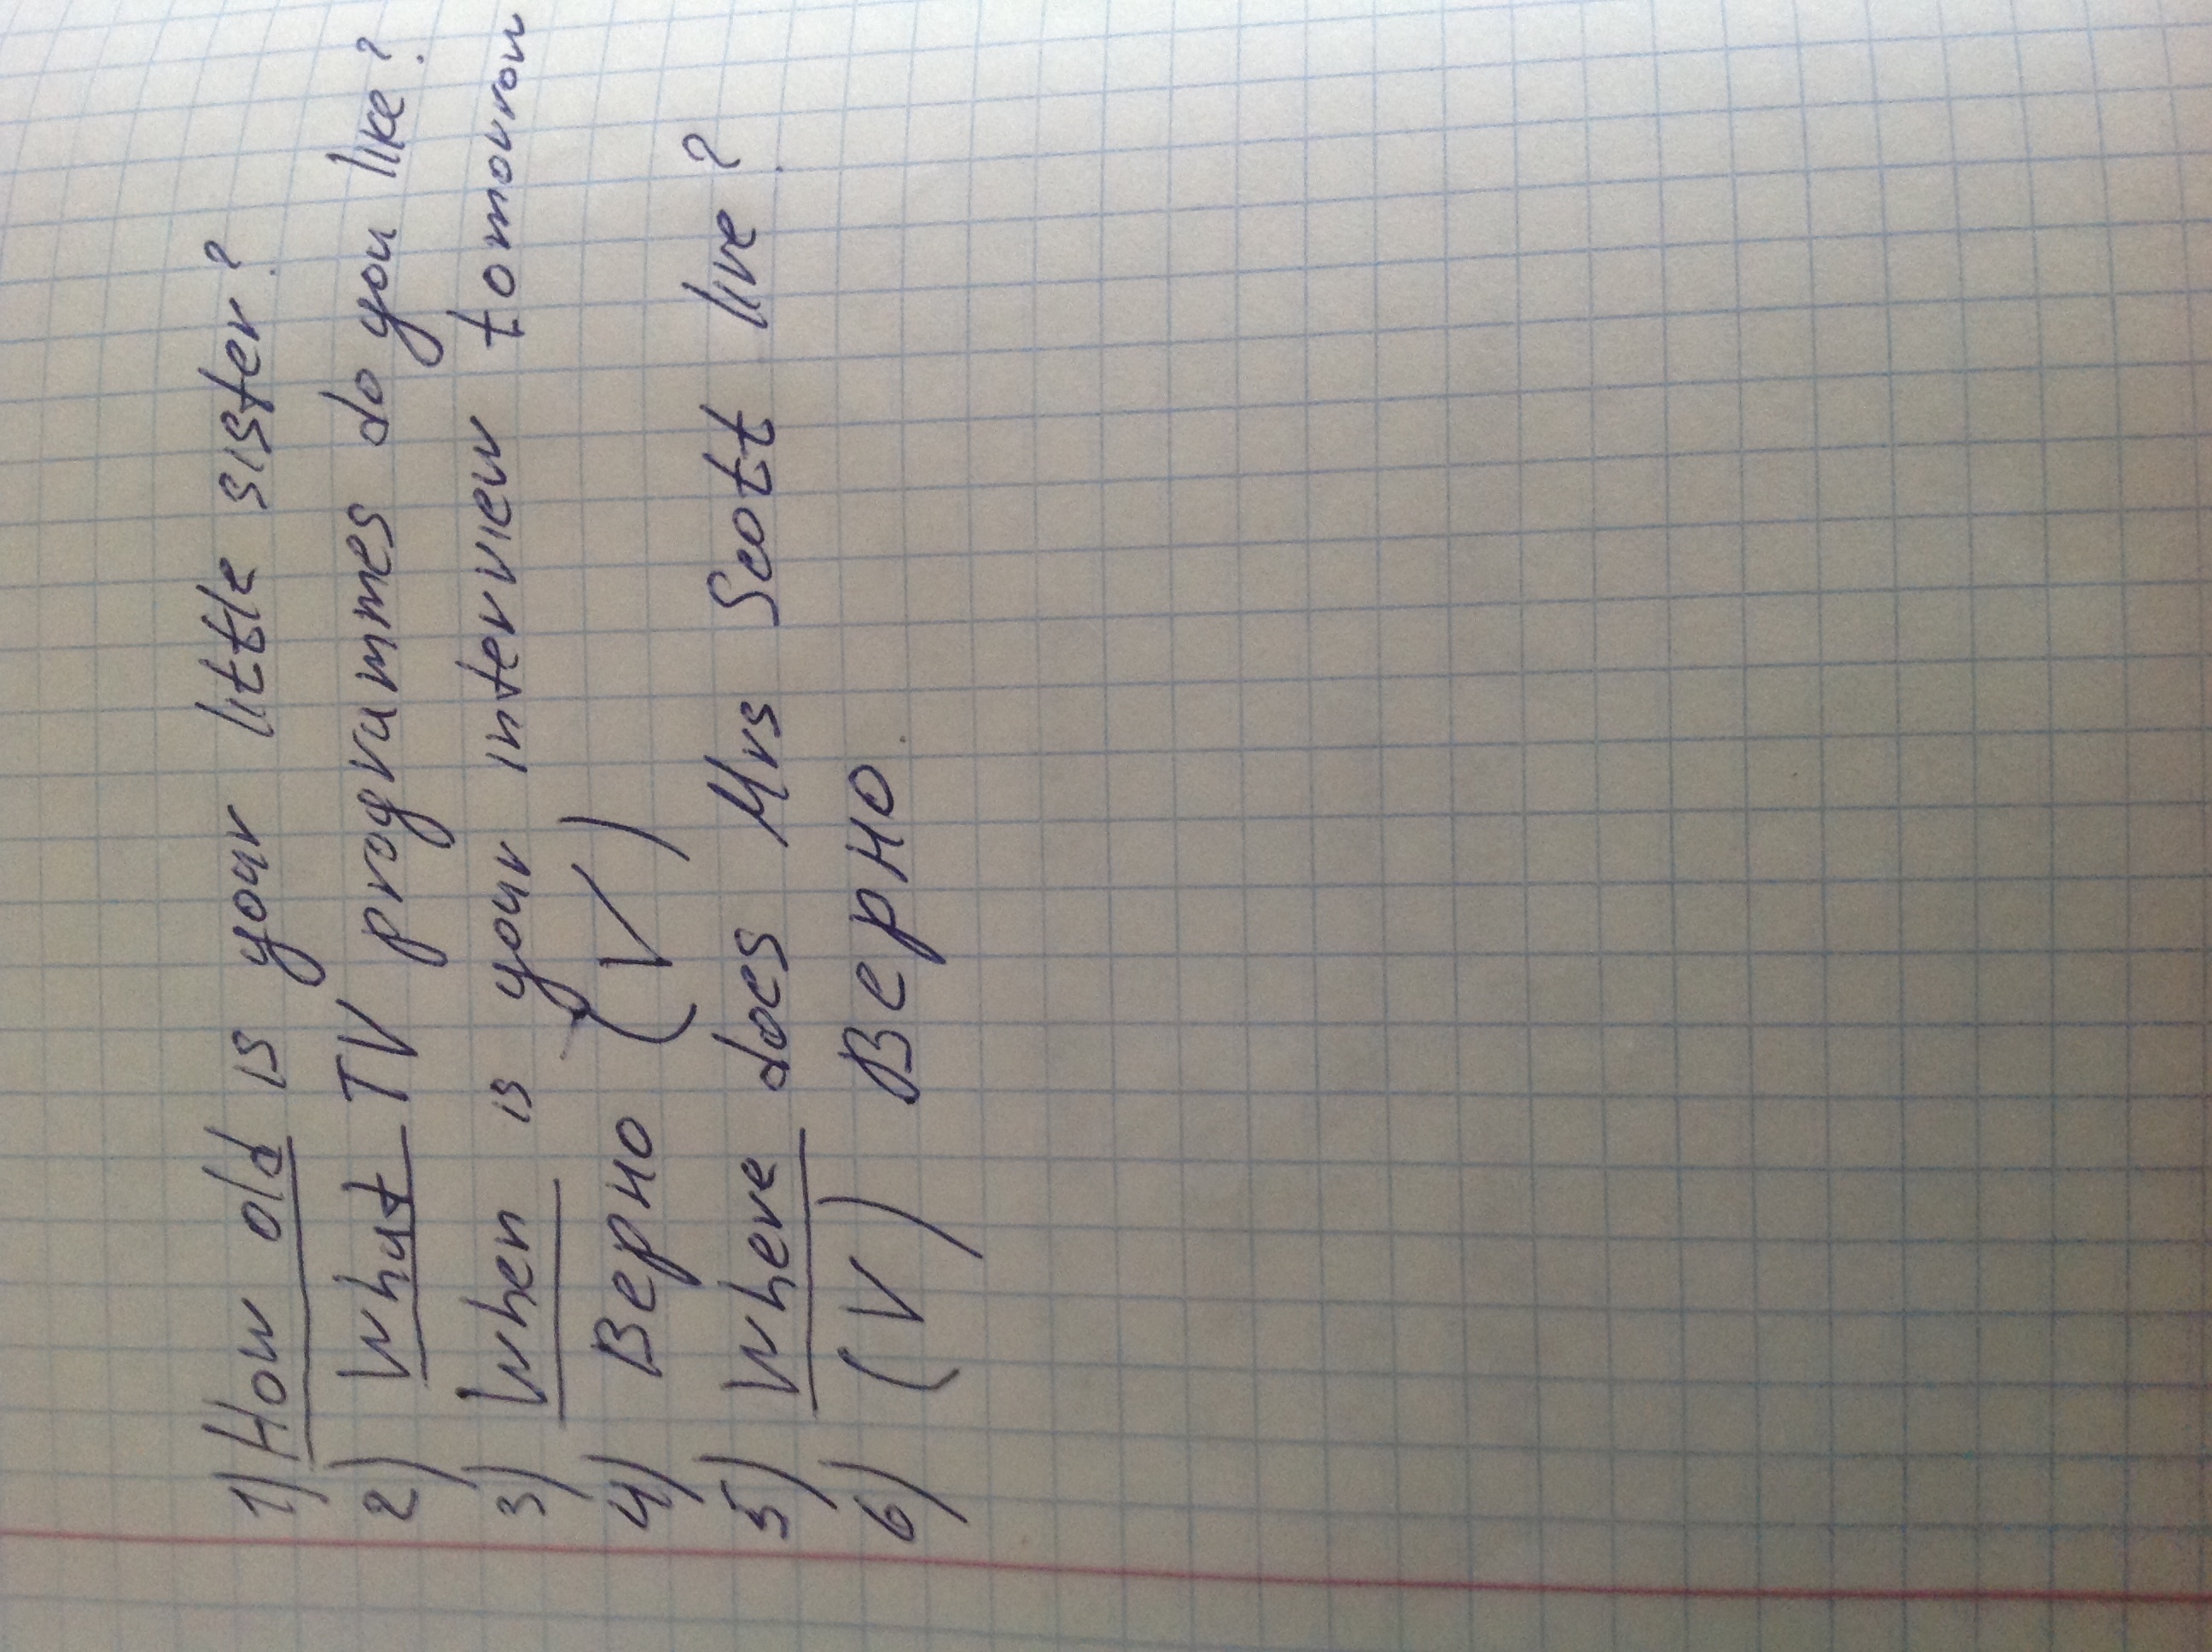 1) How old is your little sister?
2) What TV programmes do you like?
3) When is your interview tomorrow
4) Верно (V)
5) Where does Mrs Scott live?
6) (V) Верно